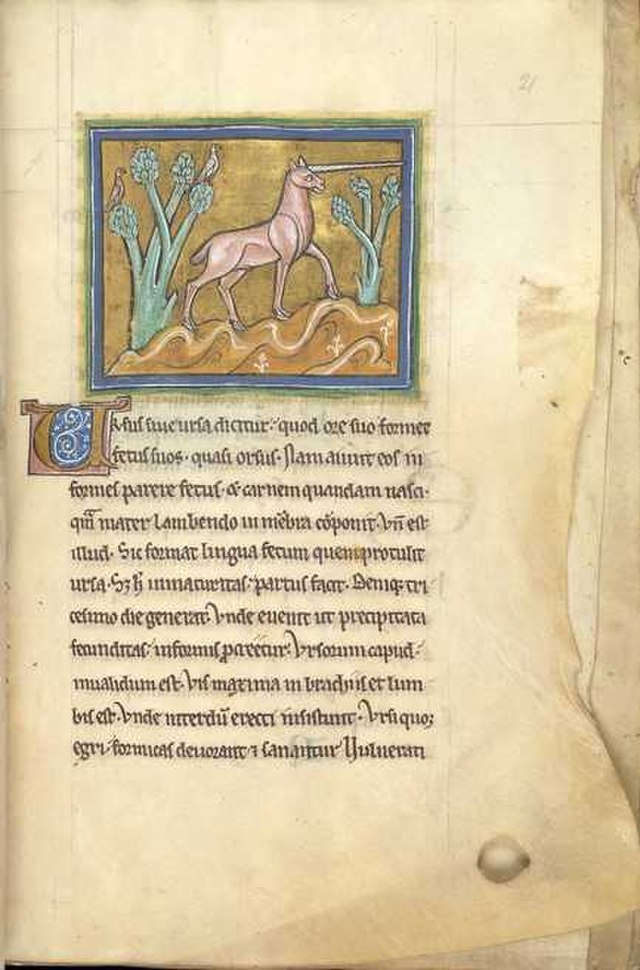 21
Vrsus siue ursa dicitur· quod ore suo formet
fetus suos· quasi orsus· Nam aiunt eos in
formes parere fetus· & carnem quandam nasci·
quā mater lambendo in mēbra cōponit· Vn̄ est
illud· Sic format lingua fetum quem protulit
ursa· Sꝫ h̄ inmaturitas· partus facit· Deniqꝫ tri
cesimo die generat· Vnde euenit ut precipitata
fecunditas· informis ꝓcreetur· Vrsorum capud·
inualidum est· Vis maxima in brachiis et lum
bis est· Vnde interdū erecti insistunt· Vrsi quoqꝫ
egri· formicas deuorant ⁊ sanantur Uulnerati